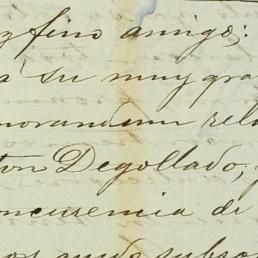 y fino amigo:
a su muy gra
morandum rela
ton Degollado,
oncurencia de